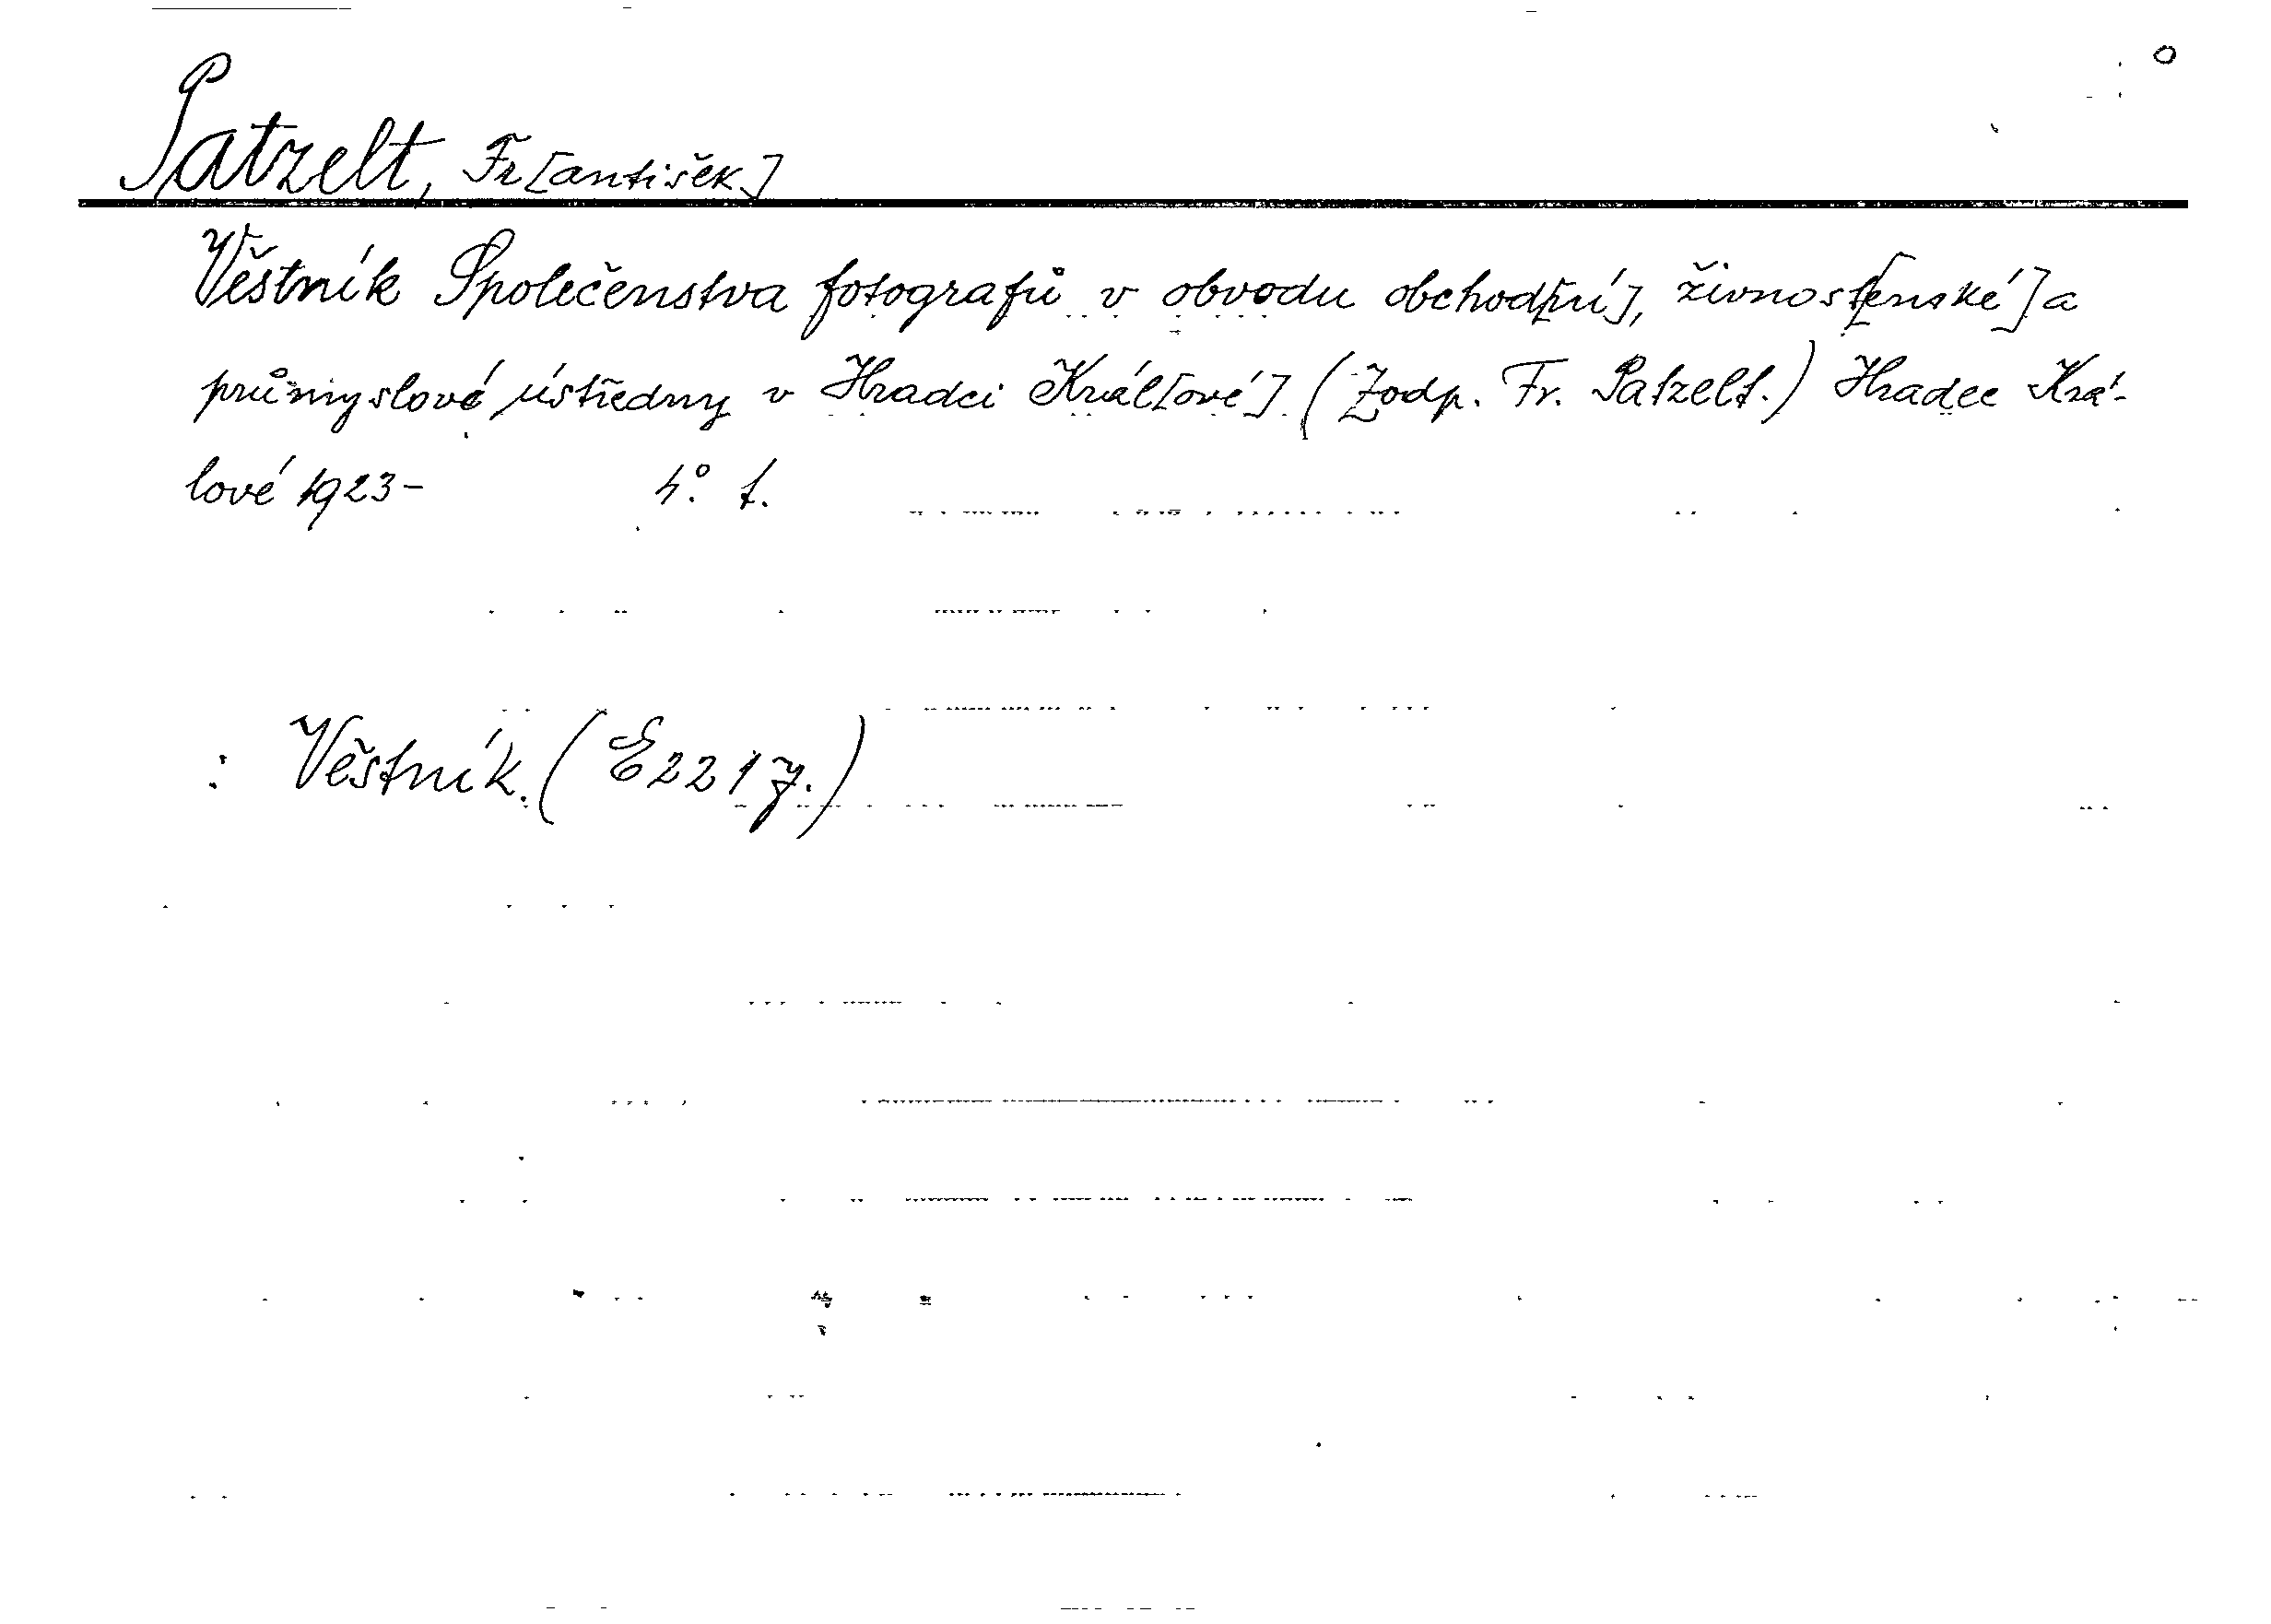 Patzelt, Fr[antišek]
Věstník Společenstva fotografů v obvodu obchod[ní], živnost[enské] a
průmyslové ústředny v Hradci Král[ové]. (Zodp. Fr. Patzelt.) Hradec Krá-
lové 1923- 4°. f.
: Věstník. (E2217.)